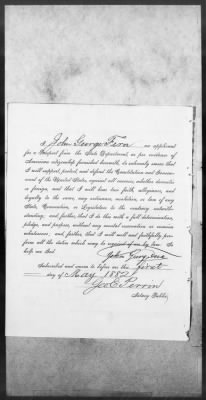 I John George Fern an applicant
for a Passport from the State Department, or for evidence of
American citizenship furnished herewith, do solemnly swear that
I will support, protect and defend the Constitution and Govern-
ment of the United States, against all enemies, whether domestic
or foreign, and that I will bear true faith, allegiance, and
loyalty to the same, any ordinance, resolution, or law of any
State, Convention, or Legislature to the contrary notwith-
standing; and further, that I do this with a full determination,
pledge, and purpose, without any mental reservation or evasion
whatsoever; and further, that I will well and faithfully per-
form all the duties which may be required of me by law. So
help me God.
Subscribed and sworn to before me this first
day of May 1882
Geo E Perrin
Notary Public.